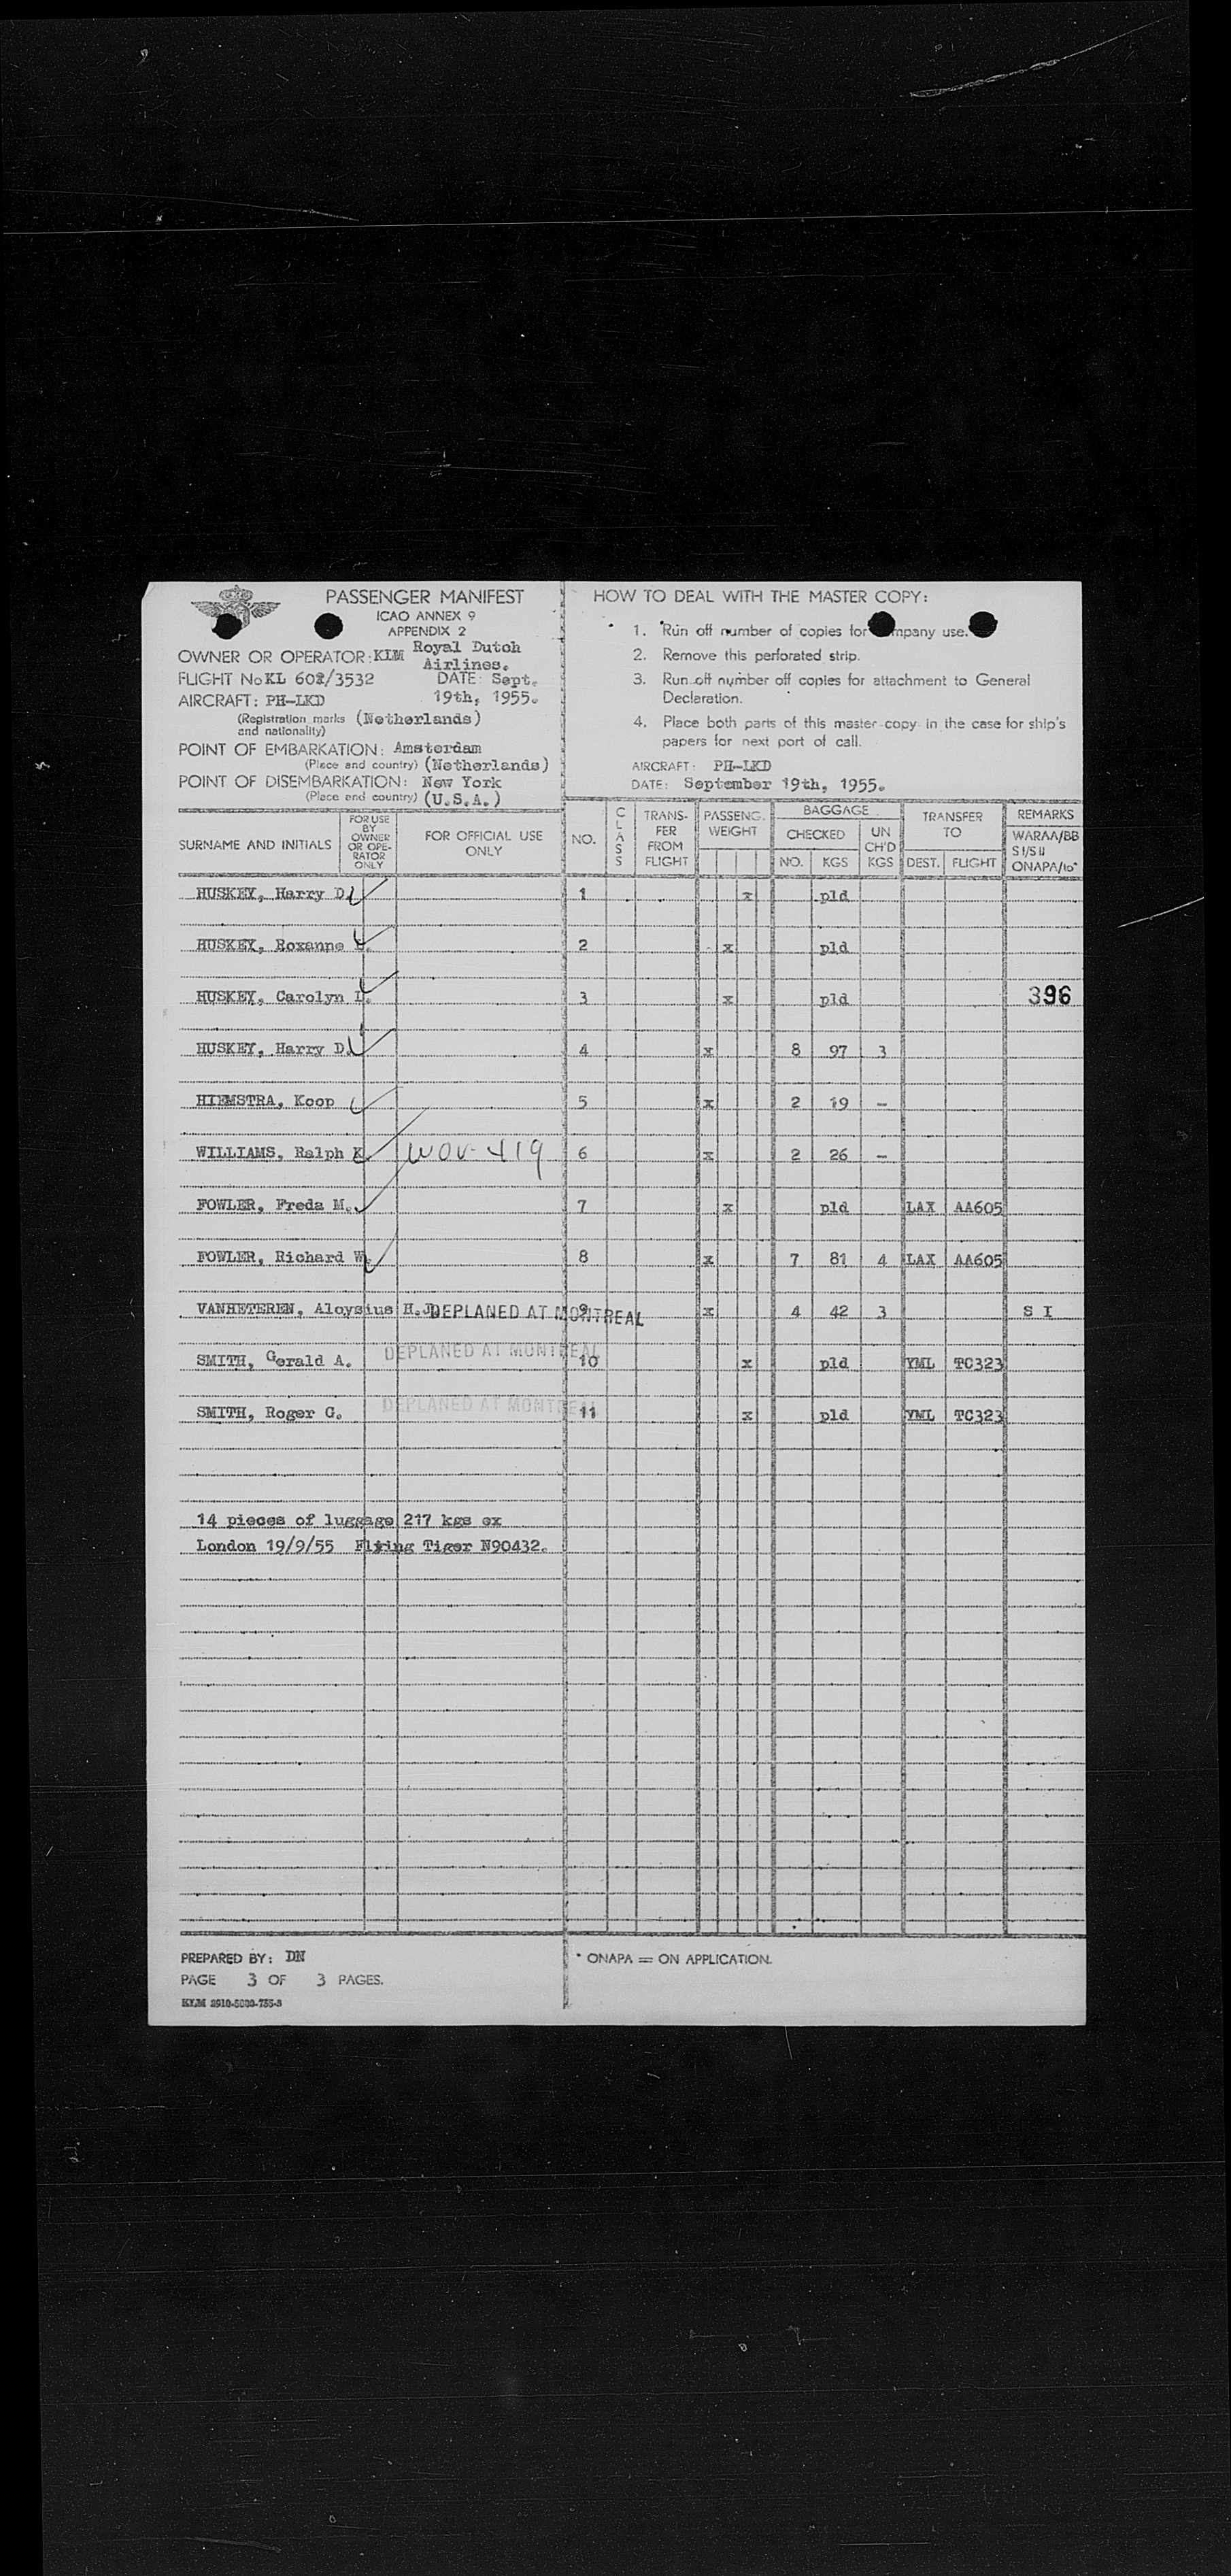 PASSENGER MANIFEST
ICAO ANNEX 9
APPENDIX 2
OWNER OR OPERATOR: KLM Royal Dutch
Airlines.
FLIGHT No KL 602/3532 DATE: Sept.
AIRCRAFT: PH-LKD 19th, 1955.
(Registration marks (Netherlands)
and nationality)
POINT OF EMBARKATION: Amsterdam
(Place and country) (Netherlands)
POINT OF DISEMBARKATION: New York
(Place and country) (U.S.A.)
HOW TO DEAL WITH THE MASTER COPY:
1. Run off number of copies for mpany use.
2. Remove this perforated strip.
3. Run off number off copies for attachment to General
Declaration.
4. Place both parts of this master copy in the case for ship's
papers for next port of call.
AIRCRAFT: PH-LKD
DATE: September 19th, 1955.
SURNAME AND INITIALS FOR USE BY OWNER OR OPE- RATOR ONLY FOR OFFICIAL USE ONLY NO. CLASS TRANS- FER FROM FLIGHT PASSENG. WEIGHT BAGGAGE CHECKED NO. KGS UN CH'D KGS TRANSFER TO DEST. FLIGHT REMARKS WARAA/BB SI/SII ONAPA/to*
HUSKEY, Harry D. 1 x pld
HUSKEY, Roxanne 2 x pld
HUSKEY, Carolyn L. 3 x pld 396
HUSKEY, Harry D. 4 x 8 97 3
HIEMSTRA, Koop 5 x 2 19 -
WILLIAMS, Ralph K. WOV-419 6 x 2 26 -
FOWLER, Freda M. 7 x pld LAX AA605
FOWLER, Richard W. 8 x 7 81 4 LAX AA605
VANHETEREN, Aloysius H.J. DEPLANED AT MONTREAL 9 x 4 42 3 S I
SMITH, Gerald A. DEPLANED AT MONTREAL 10 x pld YML TC323
SMITH, Roger G. DEPLANED AT MONTREAL 11 x pld YML TC323
14 pieces of luggage 217 kgs ex
London 19/9/55 Flying Tiger N90432.
PREPARED BY: DN
PAGE 3 OF 3 PAGES.
* ONAPA = ON APPLICATION.